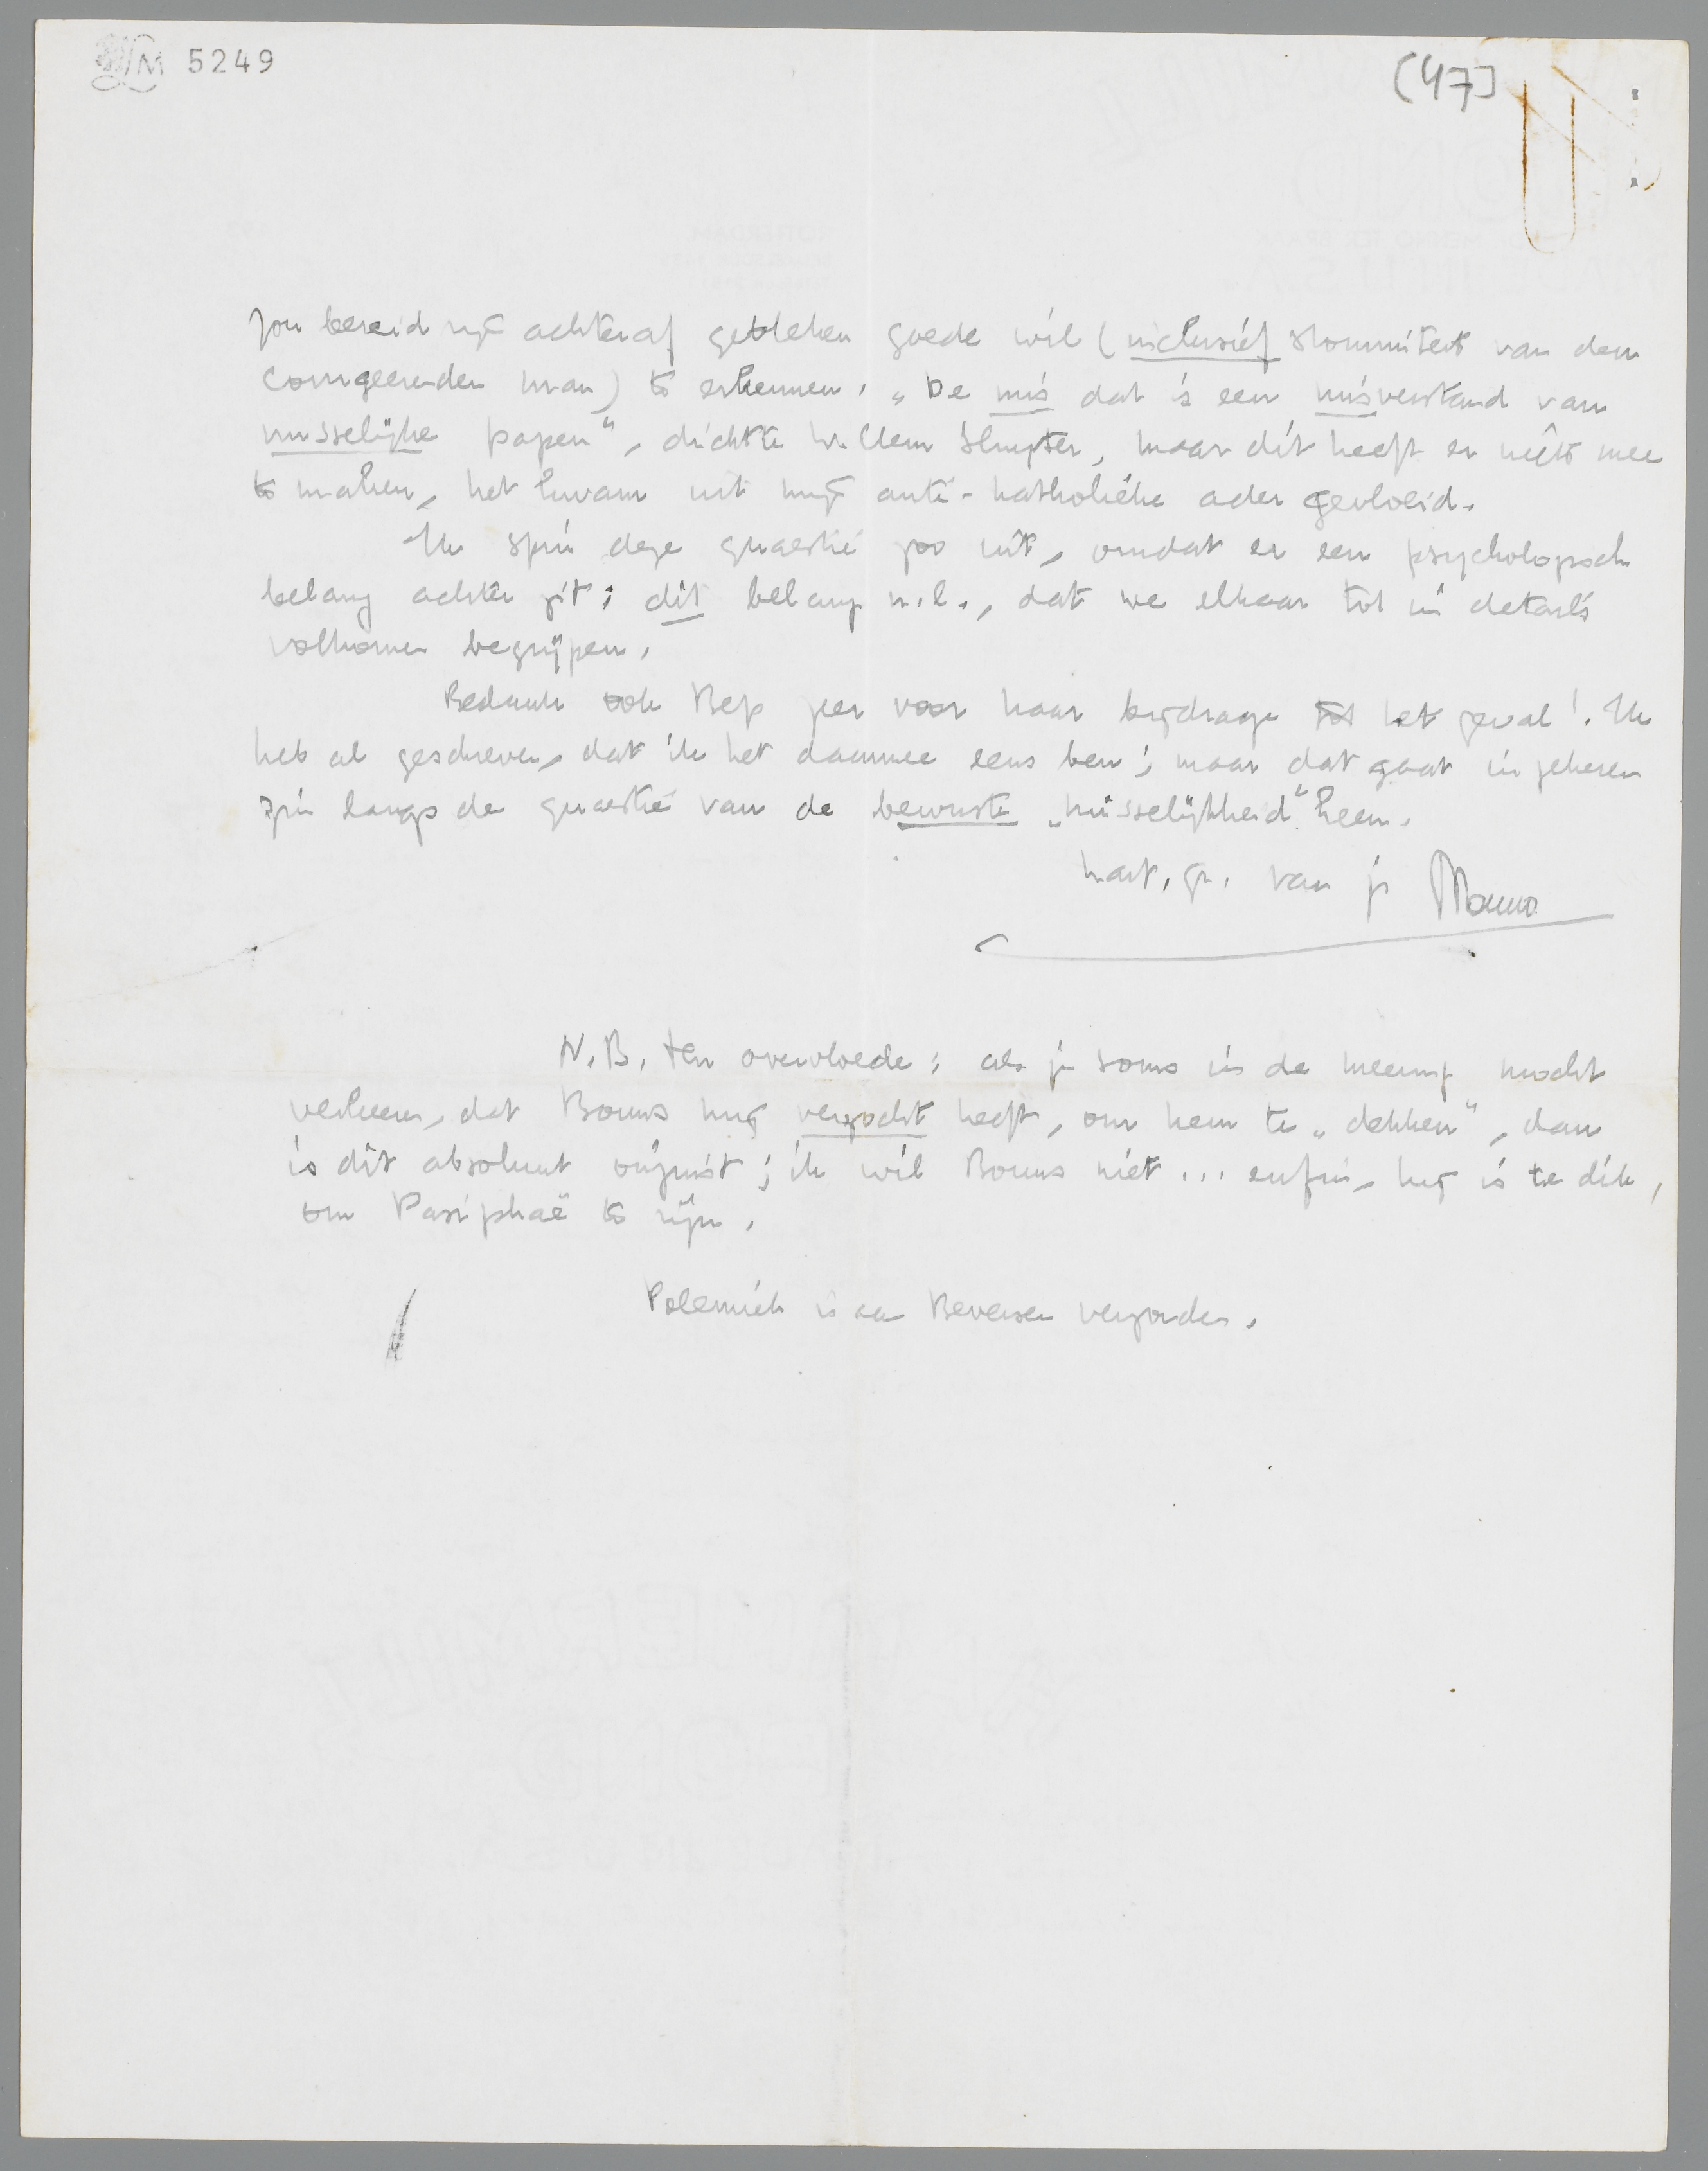 LM 5249
(47)
jou bereid mijn achteraf gebleken goede wil (inclusief stommiteit van den
corrigeerenden man) te erkennen. „De mis dat is een misverstand van
misselijke papen”, dichtte Willem Sluyter, maar dit heeft er niets mee
te maken, het kwam uit mijn anti-katholieke ader gevloeid.
Ik spin deze quaestie zoo uit, omdat er een psychologisch
belang achter zit; dit belang n.l., dat we elkaar tot in details
volkomen begrijpen.
Bedank ook Bep zeer voor haar bijdrage tot het geval! Ik
heb al geschreven, dat ik het daarmee eens ben; maar dat gaat in zekeren
zin langs de quaestie van de bewuste „misselijkheid” heen.
hart. gr. van je Menno
N.B. ten overvloede: als je soms in de meening mocht
verkeeren, dat Bouws mij verzocht heeft, om hem te „dekken”, dan
is dit absoluut onjuist; ik wil Bouws niet... enfin, hij is te dik,
om Pasiphaë te zijn.
Polemiek is aan Beversen verzonden.